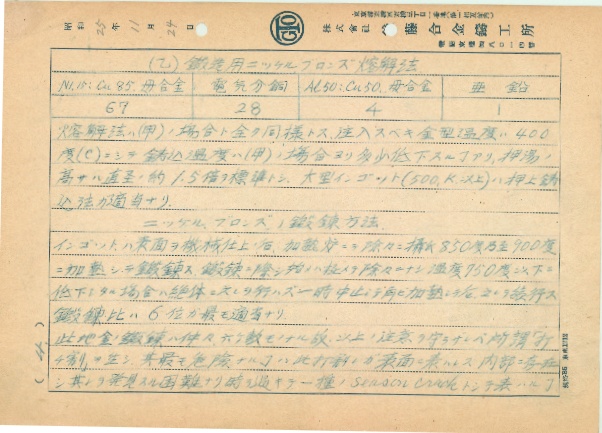 昭和 25 年 11 月 24 日
株式会社 藤合金鑄工所
(乙) 鍛造用ニッケルブロンズ熔解法
Ni.15:Cu 85.母合金 電気分銅 Al.50:Cu 50.母合金 亜鉛
67 28 4 1
熔解法ハ(甲)ノ場合ト全ク同様トス、注入スベキ金型温度ハ400
度(C)ニシテ鋳込温度ハ(甲)ノ場合ヨリ多少低下スルヿアリ、押湯ノ
高サハ直径ノ約1.5倍ヲ標準トシ、大型インゴット(500.K以上)ハ押上鋳
込法ガ適当ナリ.
ニッケル、ブロンズノ鍛錬方法.
インゴットハ表面ヲ機械仕上ノ后、加熱炉ニテ除々ニ摂氏850度乃至900度
ニ加熱シテ鍛錬ス 鍛錬ニ際シ 初ハ極メテ除々ニナシ 温度750度以下ニ
低下シタル場合ハ絶体ニ之レヲ行ハズ一時中止シテ再ビ加熱シテ后之レヲ続行ス
鍛錬比ハ 6 位ガ最モ適当ナリ
此地金ノ鍛錬ハ仲々デリ敏モノナル故、以上ノ注意ヲ守ラザレバ所謂「打
割」ヲ生ジ 其最モ危険ナルヿハ此打割レガ表面ニ表ハレズ 内部ニ存在
シ其レヲ発見スル困難ナリ時ヲ過ギテ一種ノ season crack トシテ表ハルヿ